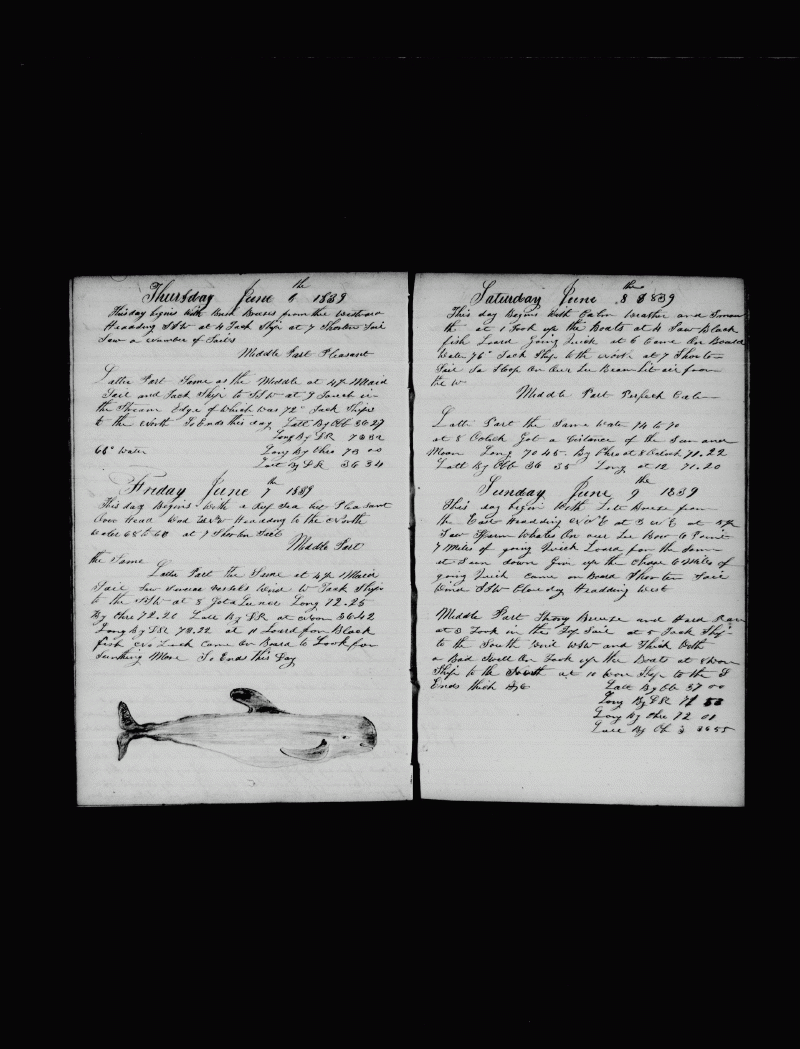 Thursday June 6th 1839
This day begins With Bresh Breeses from the Westward
Headding SSW at 4 Tack Ship at 7 Shorten Sail
Saw a number of Sails
Middle Part Pleasant
Latter Part Same as the Middle at 4 Maid
Sail and Tack Ship to SSW at 7 in
the Stream Edge of Which Was 72° Tack Ship
to the North So Ends this day Latt By Ob 36 27
Long By DR 73 32
68° Water Long By Chro 73 00
Latt By DR 36 34
Friday June 7th 1839
This day Begins With a Sea but Pleasant
Over Head Wind Headding to the North
Water 68 to at 7 Shorten Sail
Middle Part
the Same
Latter Part The Same at 4 Maid
Sail Saw vessels Wind W Tack Ship
to the SSW at 8 Got a Lunar Long 72.25
By Chro 72.20 Latt By at Noon 36.42
Long By DR 73.22 at 11 Lowrd for Black
fish No Luck came on Board to Look for
Sumthing More So Ends this Day
Saturday June 8th 1839
This day Begins With Calm Weather and
the at 1 Took up the Boats at 4 Saw Black
fish Lowrd Going Quick at 6 Came on Board
Water 76° Tack Ship to the North at 7 Shorten
Sail Sloop on Our Lee Beam Lit air from
the W
Middle Part Perfect Calm
Latter Part the Same Water 74 to 70
at 8 Oclock Got a Distance of the Sun and
Moon Long 70 45. By Chro at 8 Oclock 71.22
Latt By Ob 36 35 Long at 12 71.20
Sunday June 9th 1839
This day begin With Lite Breese from
the East Headding N W E at 3 W E at 5
Saw Sperm Whales On our Lee Bow 6 Point
7 Miles of going Quick Lowrd for the
at Sun down Give up the Chase 6 Miles of
going Quick came on Board Shorten Sail
Wind SSW Cloudy Headding West
Middle Part Strong Breeze and Hard Rain
at 3 Took in the Top Sail at 5 Tack Ship
to the South Wind WSW and Thick With
a Bad Swell On Took up the Boats at Noon
Ship to the South at 10 Wore Ship to the S
Ends thick
Latt By Ob 37 00
Long By DR 71 50
Long By Chro 72 01
Latt By 36 55